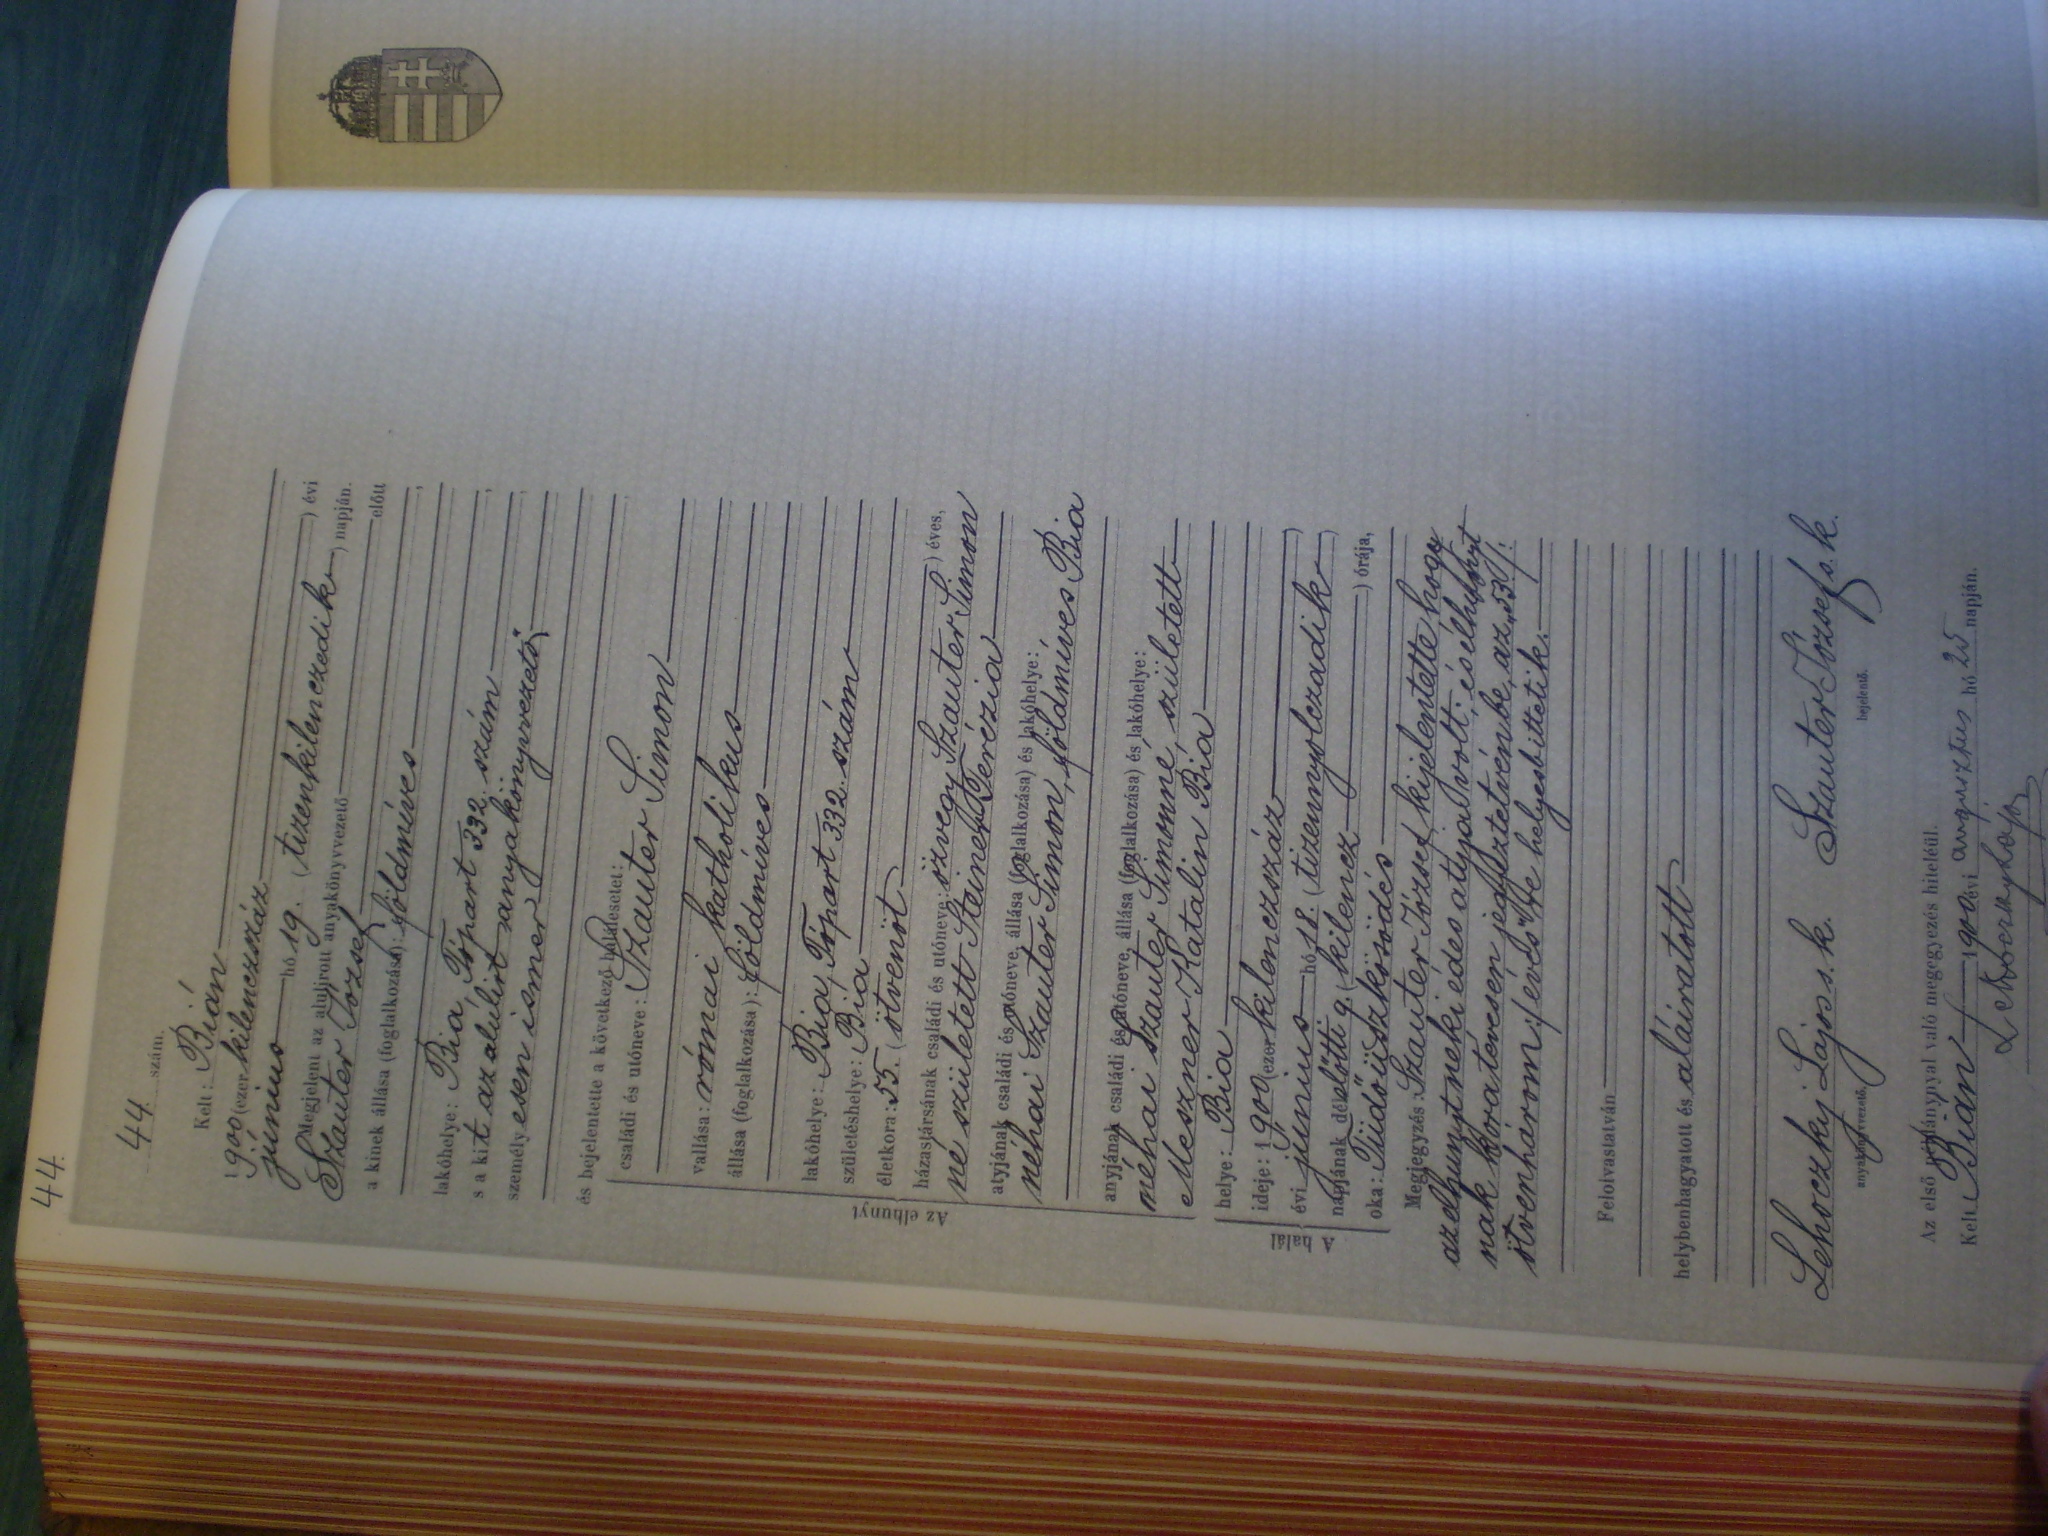 44.
44. szám.
Kelt: Bián
1900 (ezer kilenczszáz
június hó 19. (tizenkilenczedik) évi
napján.
Megjelent az alulírott anyakönyvvezető előtt
Szauter József
a kinek állása (foglalkozása): földmíves
lakóhelye: Bia, Tópart 332. szám
s a kit az alulirt anyakönyvvezető
személyesen ismer,
és bejelentette a következő halálesetet:
családi és utóneve: Szauter Simon
vallása: római katholikus
állása (foglalkozása): földmíves
Az elhunyt
lakóhelye: Bia, Tópart 332. szám
születéshelye: Bia
életkora: 55. (ötvenöt) éves,
házastársának családi és utóneve: özvegy Szauter Simon
né született Steiner Terézia
atyjának családi és utóneve, állása (foglalkozása) és lakóhelye:
néhai Szauter Simon, földmíves Bia
anyjának családi és utóneve, állása (foglalkozása) és lakóhelye:
néhai Szauter Simonné, született
Meszner Katalin Bia
A halál
helye: Bia
ideje: 1900 (ezer kilenczszáz)
évi június hó 18. (tizennyolczadik)
napjának délelőtti 9. (kilencz) órája,
oka: Tüdőüszkösödés
Megjegyzés: Szauter József kijelentette hogy
az elhunyt neki édes atyja volt; és elhunyt
nak kora tévesen jegyeztetvén be, az „53. /:
ötvenhárom:/ évés"-re helyesbittetik.
Felolvastatván
helybenhagyatott és aláiratott
Lehoczky Lajos s. k. Szauter József s. k.
anyakönyvvezető. bejelentő.
Az első példánynyal való megegyezés hiteléül.
Kelt Bián 1900 évi augusztus hó 25 napján.
Lehoczky Lajos